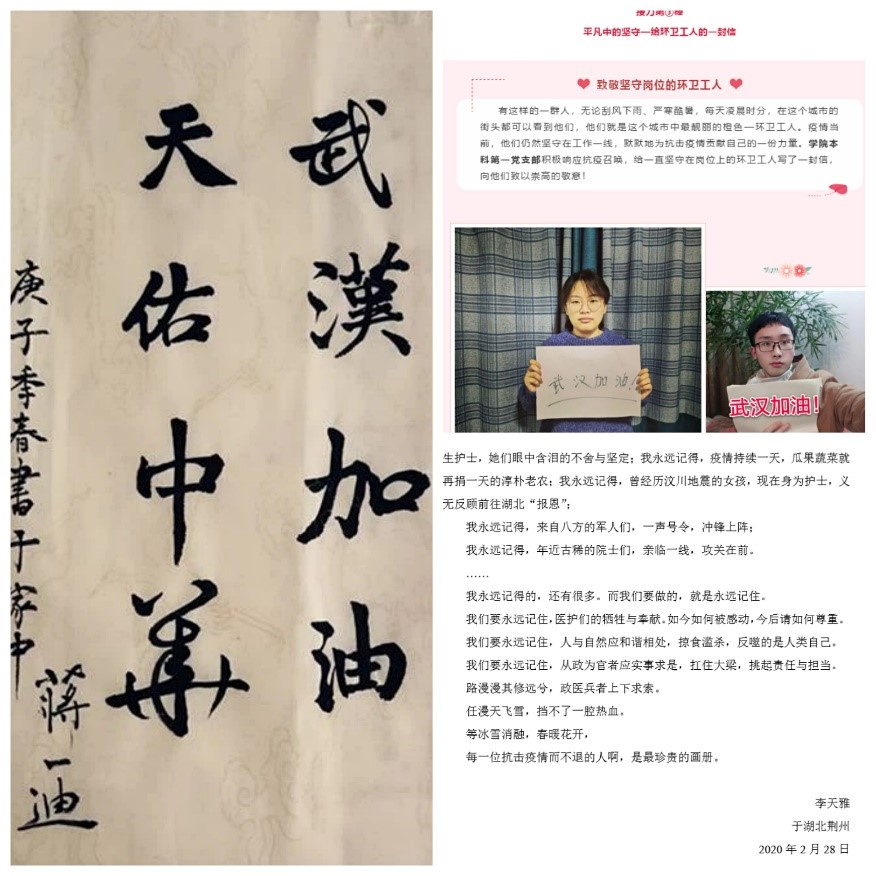 武漢加油
天佑中華
庚子季春書于家中
蔣一迪
接力第③棒
平凡中的坚守—给环卫工人的一封信
致敬坚守岗位的环卫工人
有这样的一群人，无论刮风下雨、严寒酷暑，每天凌晨时分，在这个城市的
街头都可以看到他们，他们就是这个城市中最靓丽的橙色—环卫工人。疫情当
前，他们仍然坚守在工作一线，默默地为抗击疫情贡献自己的一份力量。学院本
科第一党支部积极响应抗疫召唤，给一直坚守在岗位上的环卫工人写了一封信，
向他们致以崇高的敬意！
武汉加油!
武汉加油!
生护士，她们眼中含泪的不舍与坚定；我永远记得，疫情持续一天，瓜果蔬菜就
再捐一天的淳朴老农；我永远记得，曾经历汶川地震的女孩，现在身为护士，义
无反顾前往湖北“报恩”；
我永远记得，来自八方的军人们，一声号令，冲锋上阵；
我永远记得，年近古稀的院士们，亲临一线，攻关在前。
……
我永远记得的，还有很多。而我们要做的，就是永远记住。
我们要永远记住，医护们的牺牲与奉献。如今如何被感动，今后请如何尊重。
我们要永远记住，人与自然应和谐相处，掠食滥杀，反噬的是人类自己。
我们要永远记住，从政为官者应实事求是，扛住大梁，挑起责任与担当。
路漫漫其修远兮，政医兵者上下求索。
任漫天飞雪，挡不了一腔热血。
等冰雪消融，春暖花开，
每一位抗击疫情而不退的人啊，是最珍贵的画册。
李天雅
于湖北荆州
2020 年 2 月 28 日